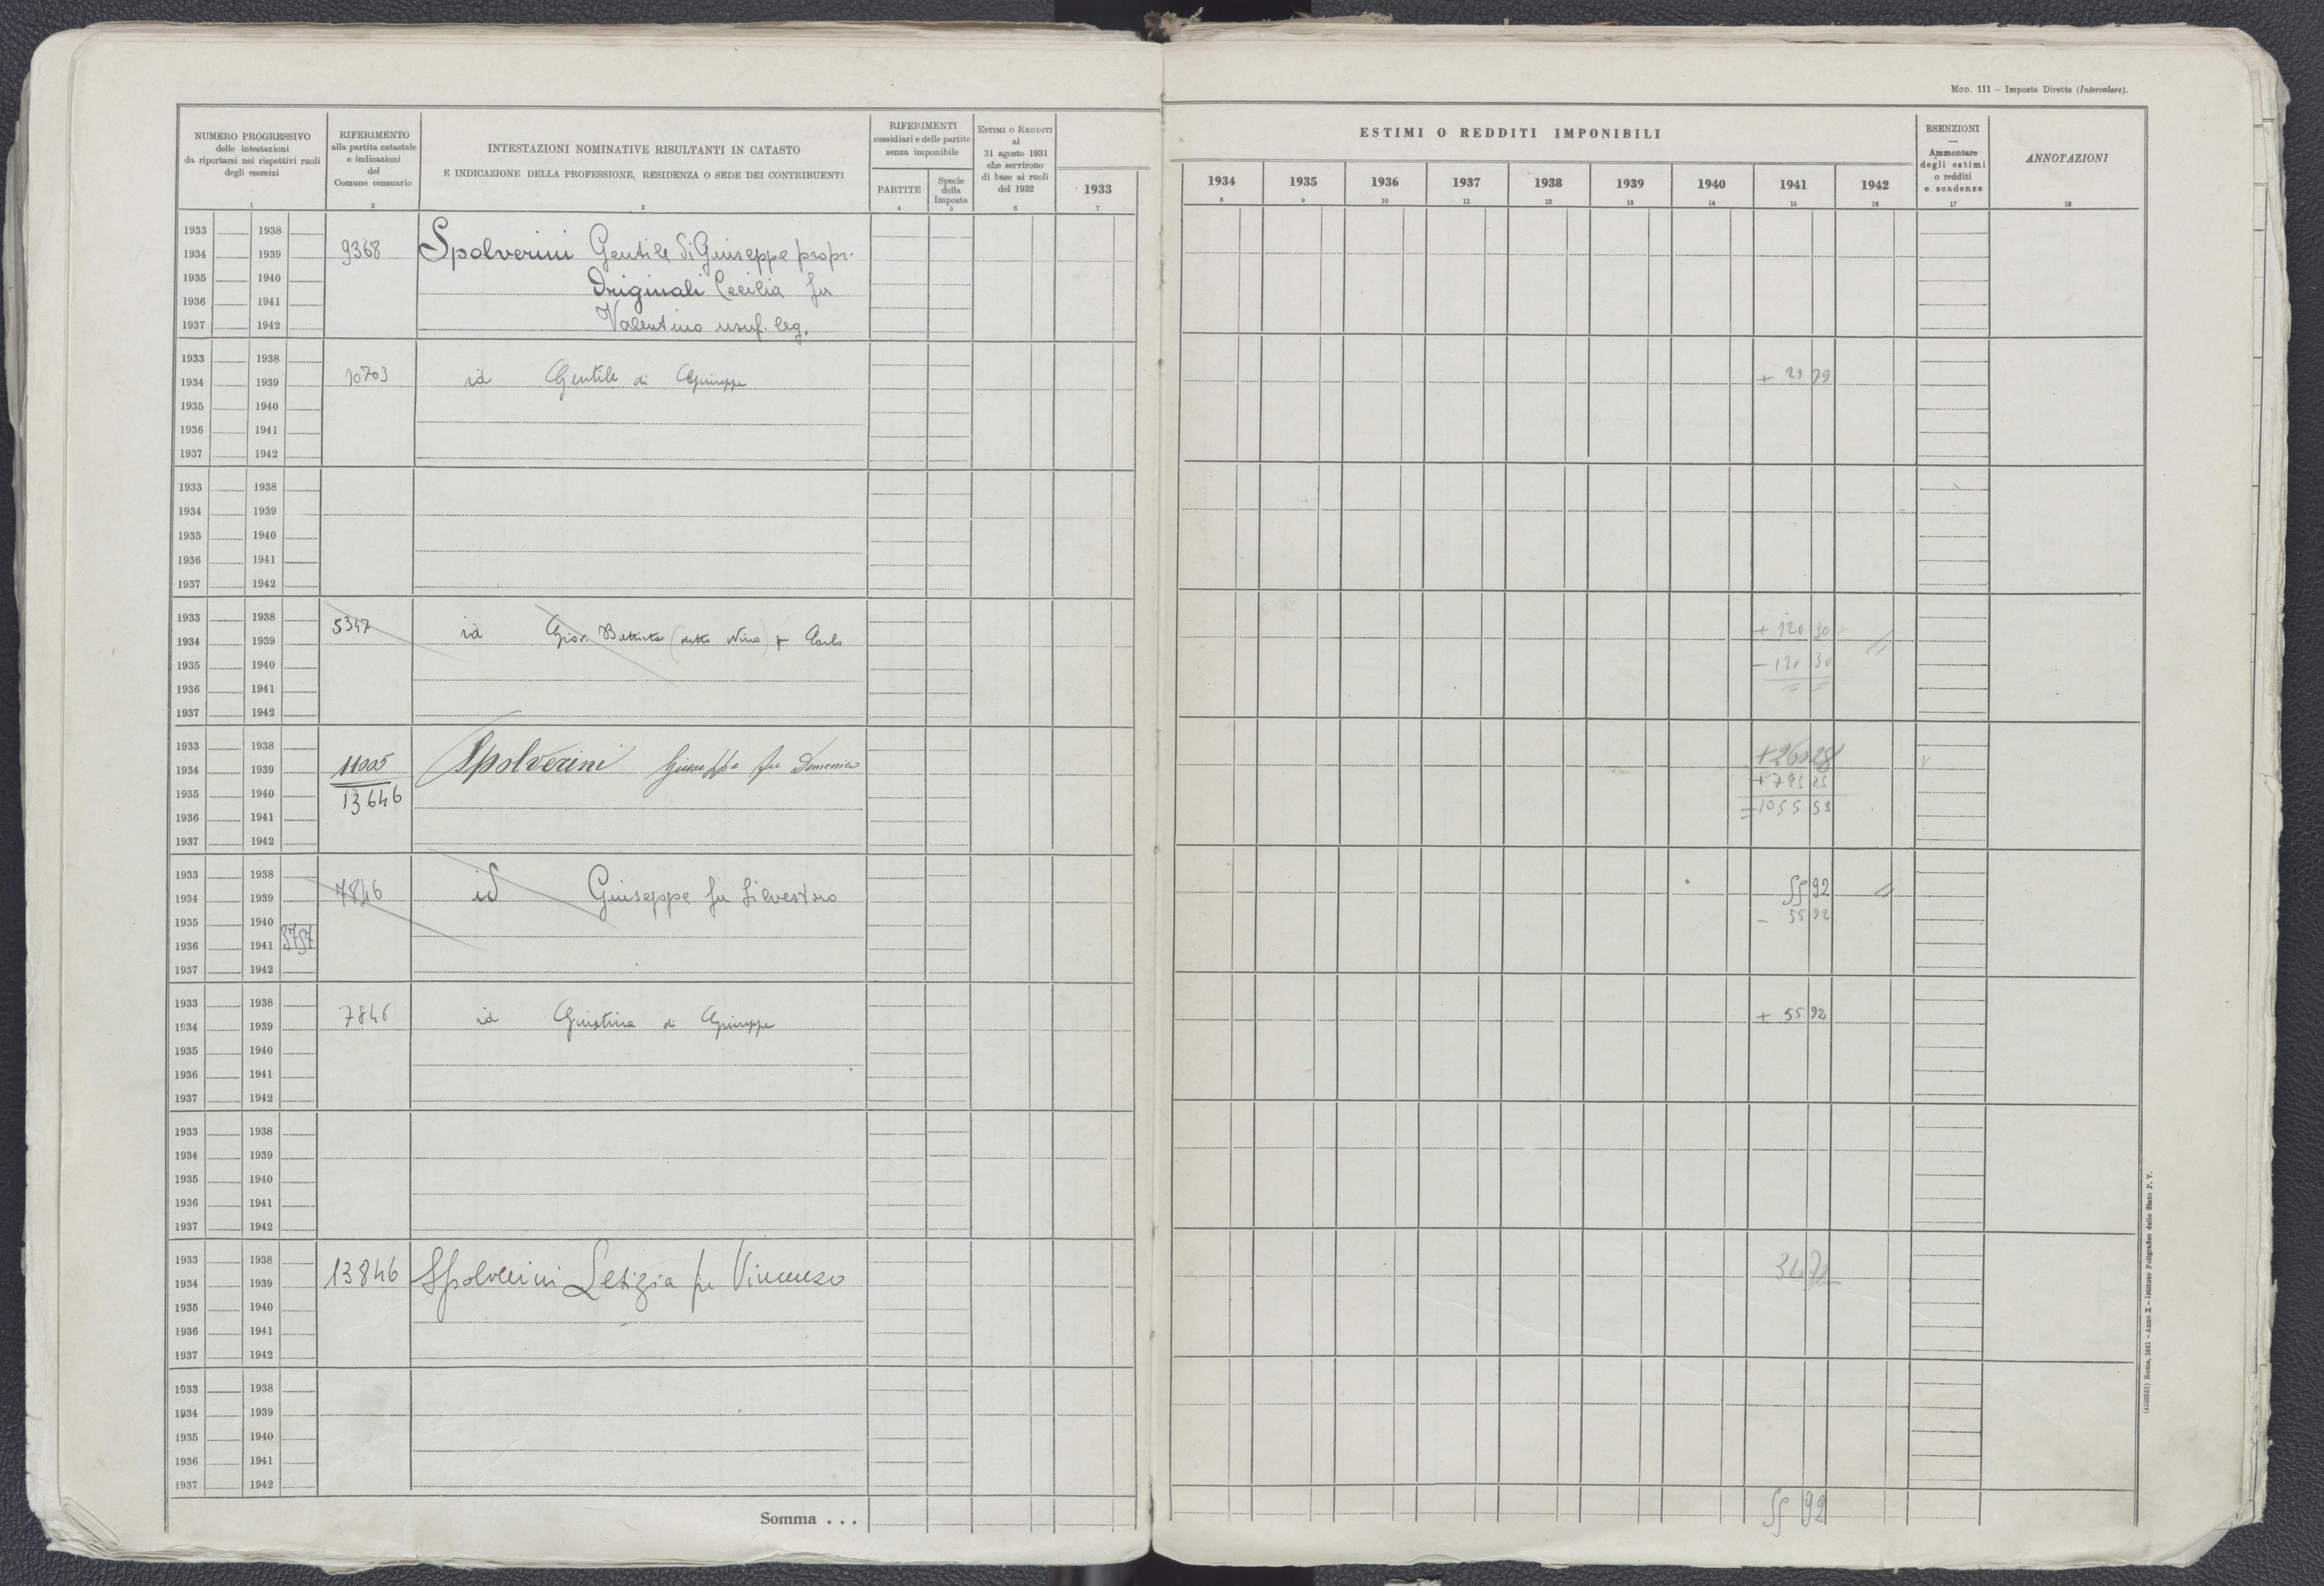 MOD. 111 – Imposte Dirette (Intercalare).
NUMERO PROGRESSIVO
delle intestazioni
da riportarsi nei rispettivi ruoli
degli esercizi
1
RIFERIMENTO
alla partita catastale
e indicazioni
del
Comune censuario
2
INTESTAZIONI NOMINATIVE RISULTANTI IN CATASTO
E INDICAZIONE DELLA PROFESSIONE, RESIDENZA O SEDE DEI CONTRIBUENTI
3
RIFERIMENTI
sussidiari e delle partite
senza imponibile
PARTITE
4
Specie
della
Imposta
5
ESTIMI O REDDITI
al
31 agosto 1931
che servirono
di base ai ruoli
del 1932
6
1933
7
ESTIMI O REDDITI IMPONIBILI
1934 1935 1936 1937 1938 1939 1940 1941 1942
8 9 10 11 12 13 14 15 16
ESENZIONI
—
Ammontare
degli estimi
o redditi
e scadenze
17
ANNOTAZIONI
18
1933 1938
1934 1939 9368 Spolverini Gentile di Giuseppe propr.
1935 1940 Originali Cecilia fu
1936 1941
1937 1942 Valentino usuf. leg.
1933 1938
1934 1939 10703 id Gentile di Giuseppe + 29 29
1935 1940
1936 1941
1937 1942
1933 1938
1934 1939
1935 1940
1936 1941
1937 1942
1933 1938
1934 1939 5347 id Giov. Battista (detto Nino) fu Carlo + 120 30
1935 1940 – 120 30
1936 1941
1937 1942
1933 1938
1934 1939 11005 Spolverini Giuseppe fu Domenico + 260 28
1935 1940 13646 + 795 25
1936 1941 = 1055 53
1937 1942
1933 1938
1934 1939 7846 id Giuseppe fu Silvestro 55 92
1935 1940 – 55 92
1936 1941 3737
1937 1942
1933 1938
1934 1939 7846 id Giustina di Giuseppe + 55 92
1935 1940
1936 1941
1937 1942
1933 1938
1934 1939
1935 1940
1936 1941
1937 1942
1933 1938
1934 1939 13846 Spolverini Letizia fu Vincenzo
1935 1940
1936 1941
1937 1942
1933 1938
1934 1939
1935 1940
1936 1941
1937 1942
Somma . . . 55 92
(4100531) Roma, 1931 – Anno X – Istituto Poligrafico dello Stato P. V.